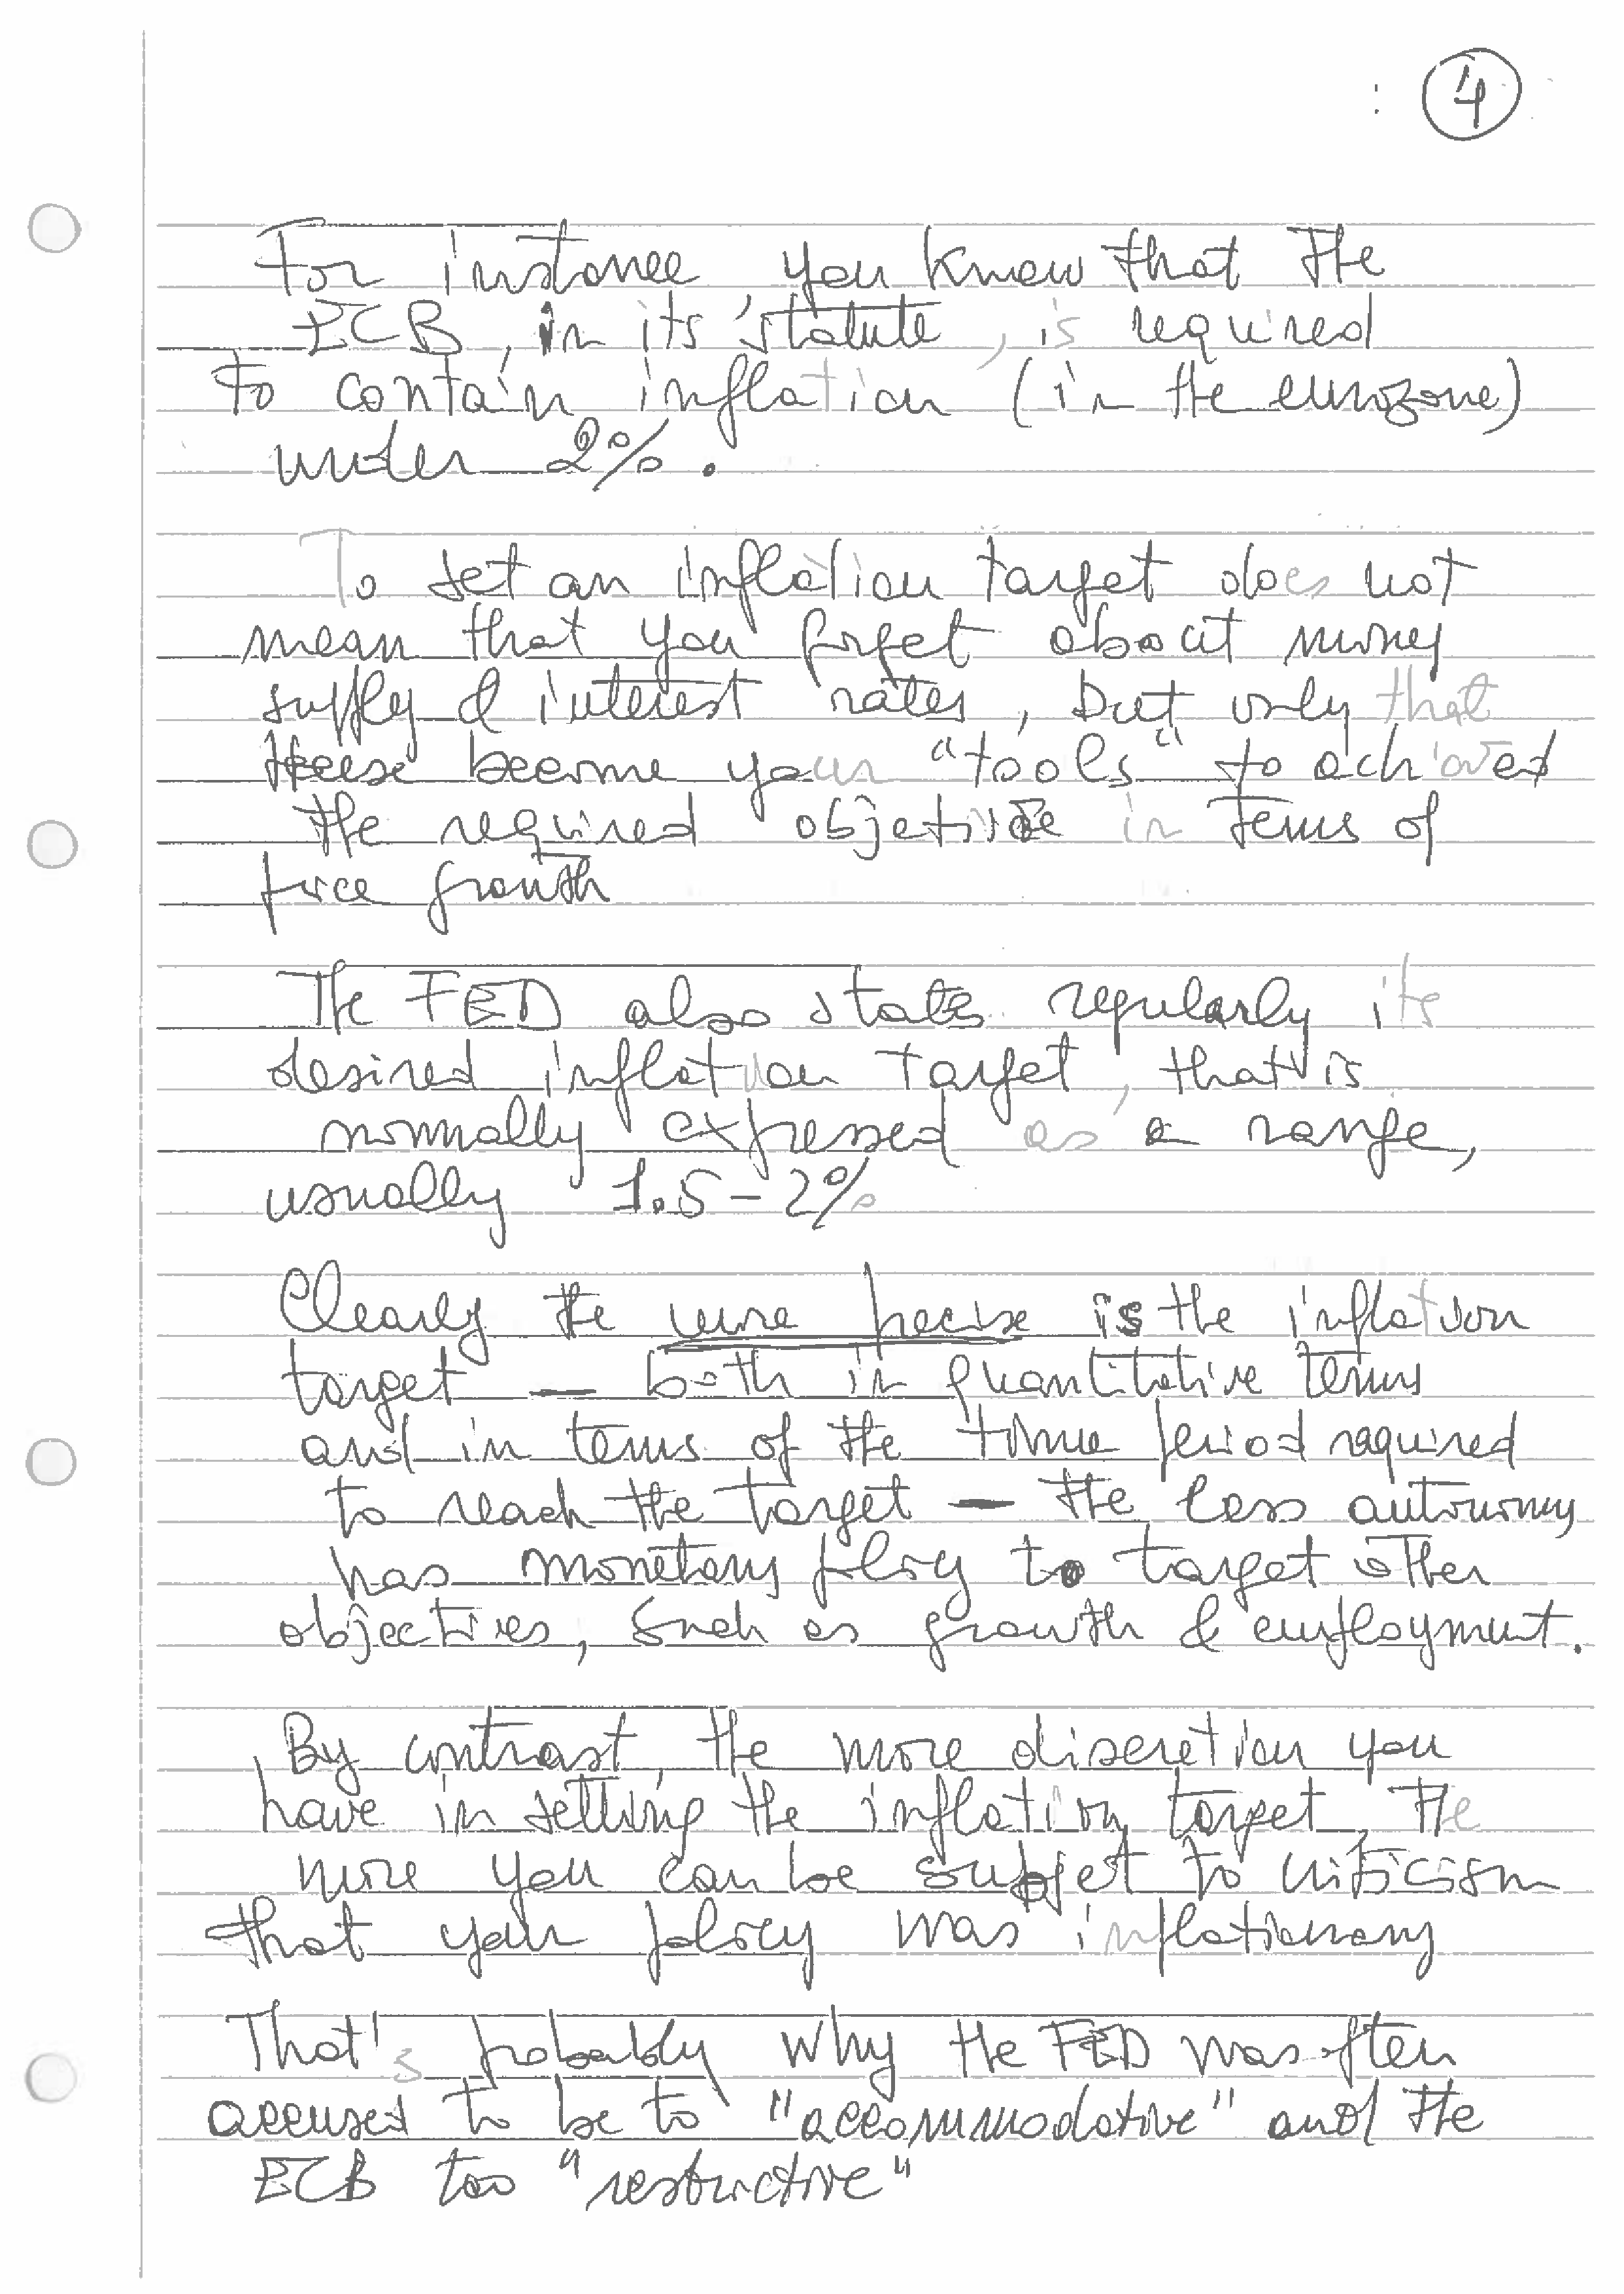 4
For instance you know that the
ECB, in its statute, is required
to contain inflation (in the eurozone)
under 2%.
To set an inflation target does not
mean that you forget about money
supply & interest rates, but only that
these become your "tools" to achieved
the required objetive in terms of
price growth
The FED also states regularly its
desired inflation target, that is
normally expressed as a range,
usually 1.5-2%
Clearly the more precise is the inflation
target — both in quantitative terms
and in terms of the time period required
to reach the target — the less autonomy
has monetary policy to target other
objectives, such as growth & employment.
By contrast, the more discretion you
have in setting the inflation target, the
more you can be subject to criticism
that your policy was inflationary
That's probably why the FED was often
accused to be to "accommodative" and the
ECB too "restrictive"